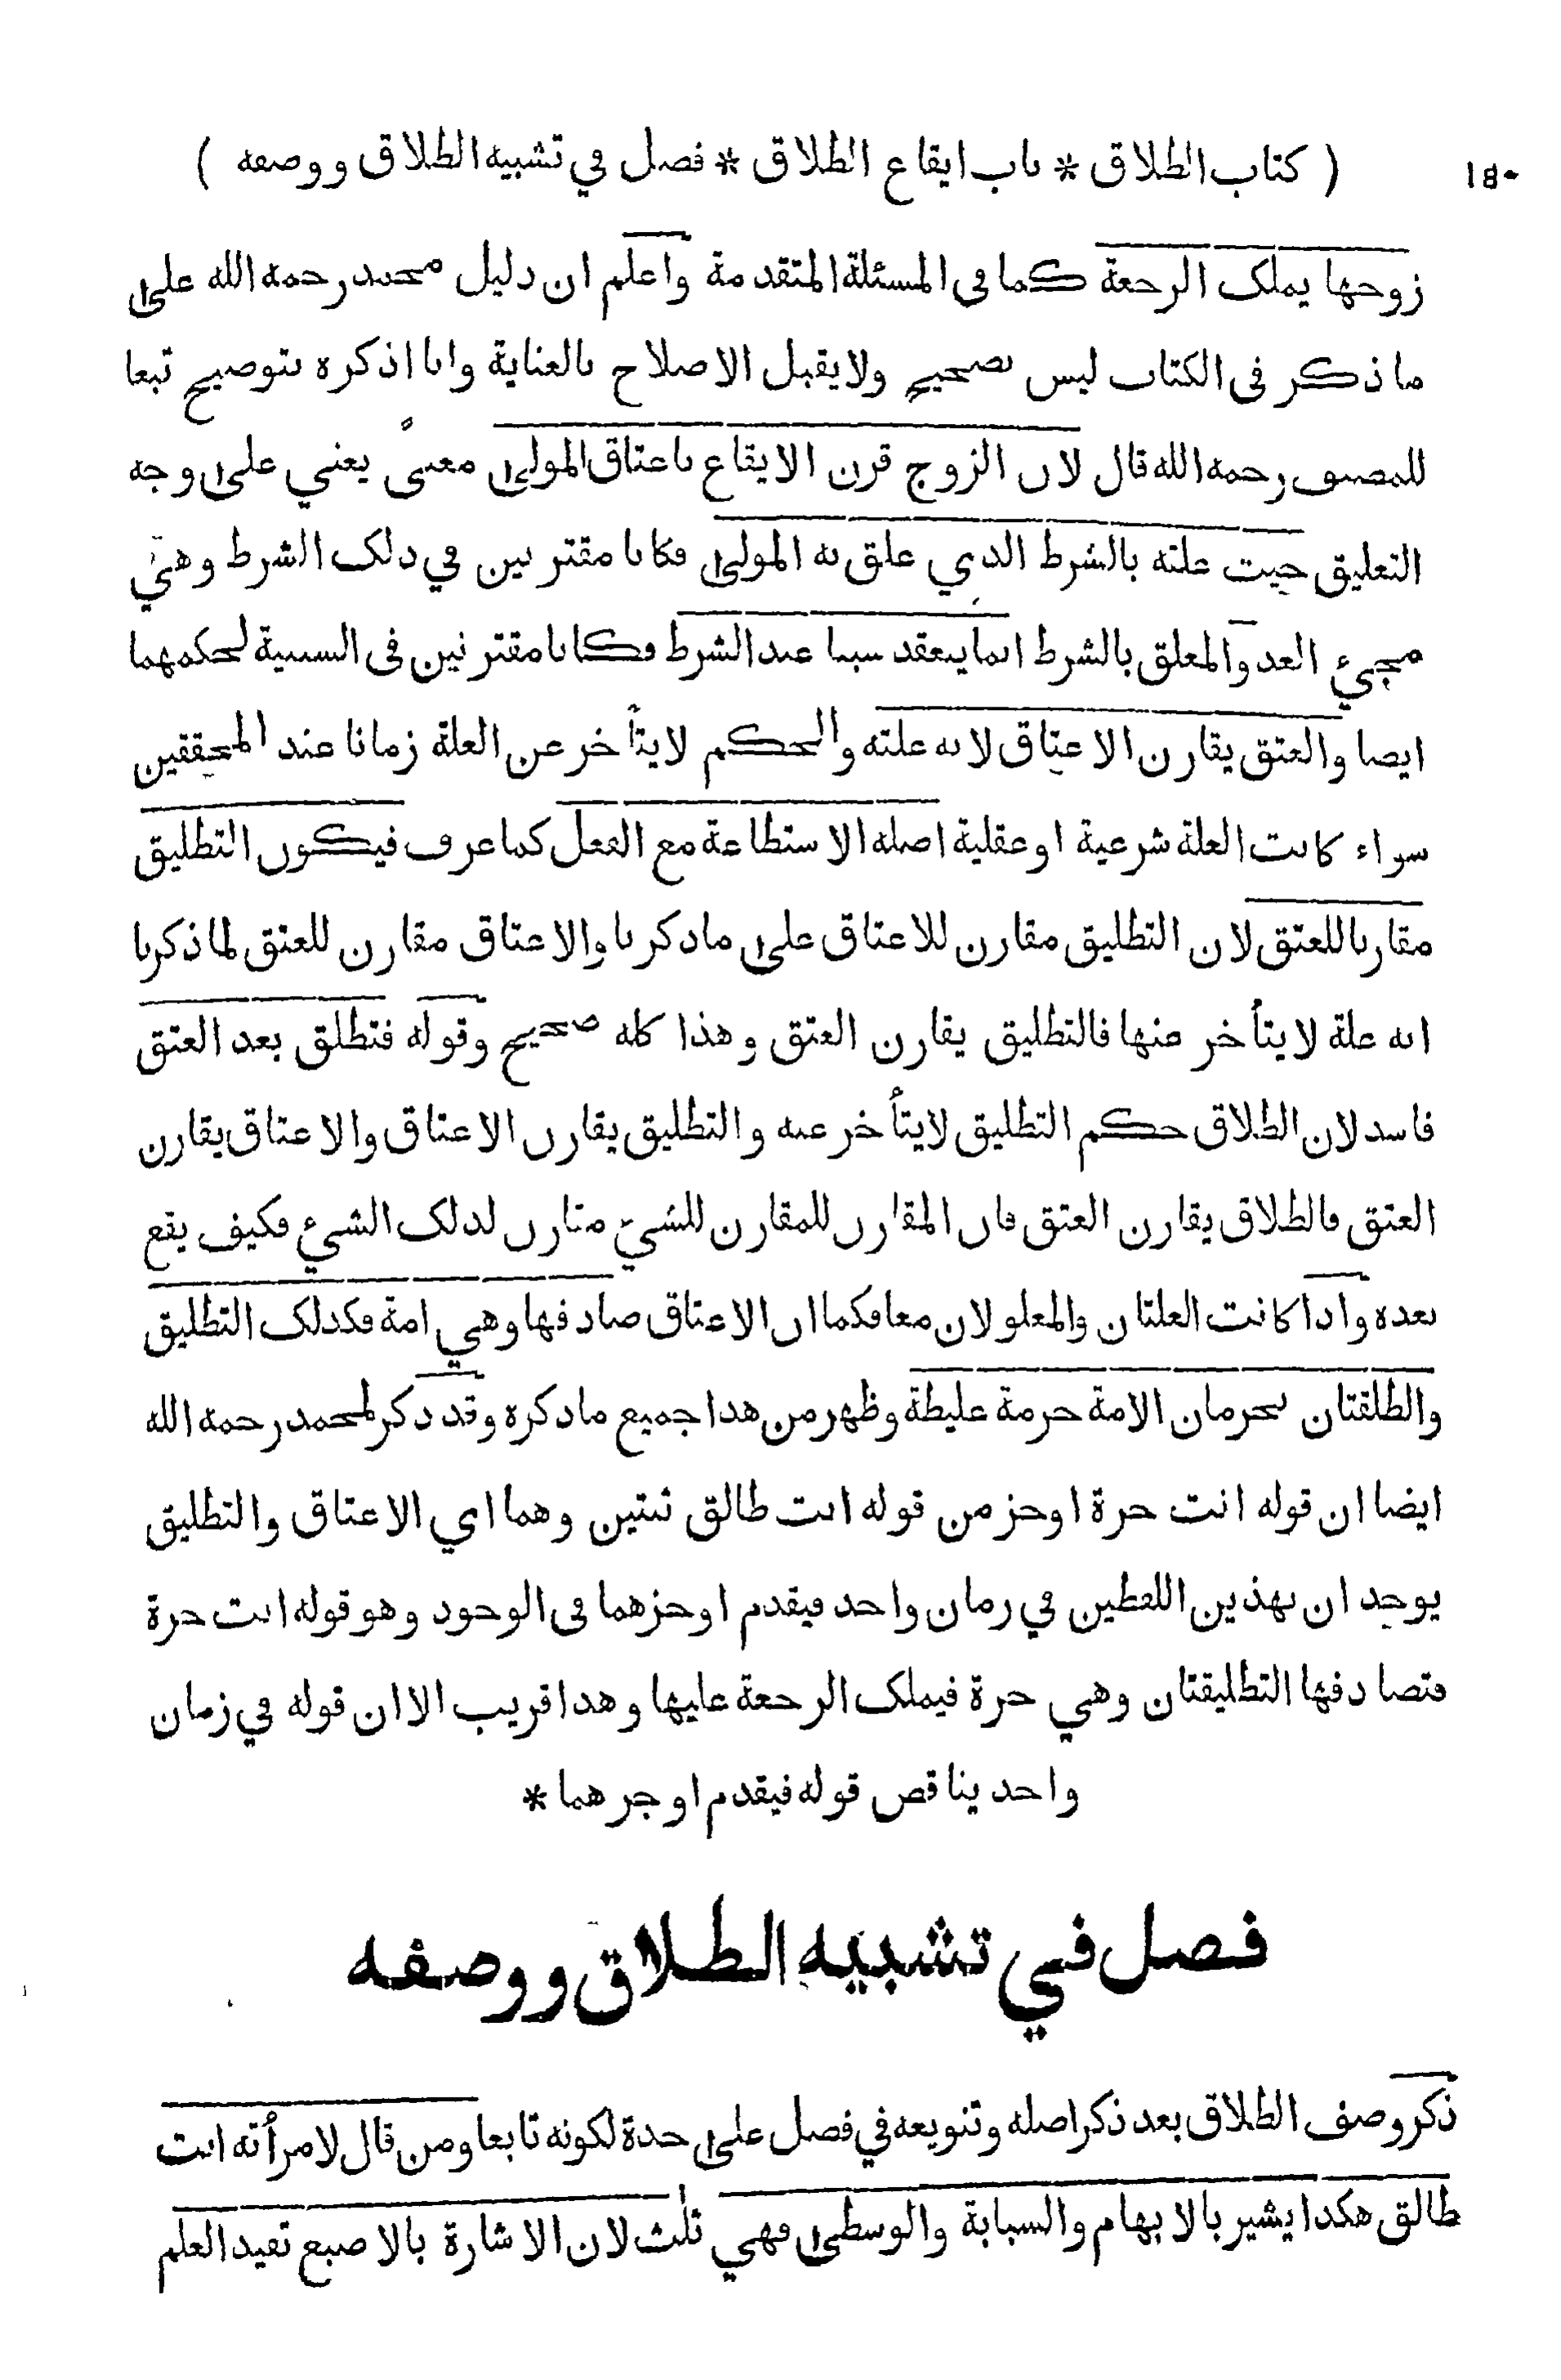 ( كتاب الطلاق * باب ايقاع الطلاق * فصل في تشبيه الطلاق و وصفه ) ١٥٠
زوجها يملك الرجعة كما في المسئلة المتقدمة واعلم ان دليل محمد رحمه الله على
ما ذكر في الكتاب ليس بصحيح ولا يقبل الاصلاح بالعناية وانا اذكره بتوضيح تبعا
للمصنف رحمه الله قال لان الزوج قرن الايقاع باعتاق المولى معنىً يعني على وجه
التعليق حيث علقه بالشرط الذي علق به المولى فكانا مقترنين في ذلك الشرط وهي
مجيء الغد والمعلق بالشرط انما ينعقد سببا عند الشرط فكانا مقترنين في السببية لحكمهما
ايضا والعتق يقارن الاعتاق لانه علته والحكم لا يتأخر عن العلة زمانا عند المحققين
سواء كانت العلة شرعية او عقلية اصله الاستطاعة مع الفعل كما عرف فيكون التطليق
مقارنا للعتق لان التطليق مقارن للاعتاق على ما ذكرنا والاعتاق مقارن للعتق لما ذكرنا
انه علة لا يتأخر عنها فالتطليق يقارن العتق وهذا كله صحيح وقوله فتطلق بعد العتق
فاسد لان الطلاق حكم التطليق لا يتأخر عنه والتطليق يقارن الاعتاق والاعتاق يقارن
العتق فالطلاق يقارن العتق فان المقارن للمقارن للشيء مقارن لذلك الشيء فكيف يقع
بعده واذا كانت العلتان والمعلولان معا فكما ان الاعتاق صادفها وهي امة فكذلك التطليق
والطلقتان تحرمان الامة حرمة غليظة وظهر من هذا جميع ما ذكره وقد ذكر لمحمد رحمه الله
ايضا ان قوله انت حرة اوجز من قوله انت طالق ثنتين وهما اي الاعتاق والتطليق
يوجدان بهذين اللفظين في زمان واحد فيقدم اوجزهما في الوجود وهو قوله انت حرة
فتصادفها التطليقتان وهي حرة فيملك الرجعة عليها وهذا قريب الا ان قوله في زمان
واحد يناقض قوله فيقدم اوجزهما *
فصل في تشبيه الطلاق و وصفه
ذكر وصف الطلاق بعد ذكر اصله وتنويعه في فصل على حدة لكونه تابعا ومن قال لامرأته انت
طالق هكذا يشير بالابهام والسبابة والوسطى فهي ثلث لان الاشارة بالاصبع تفيد العلم